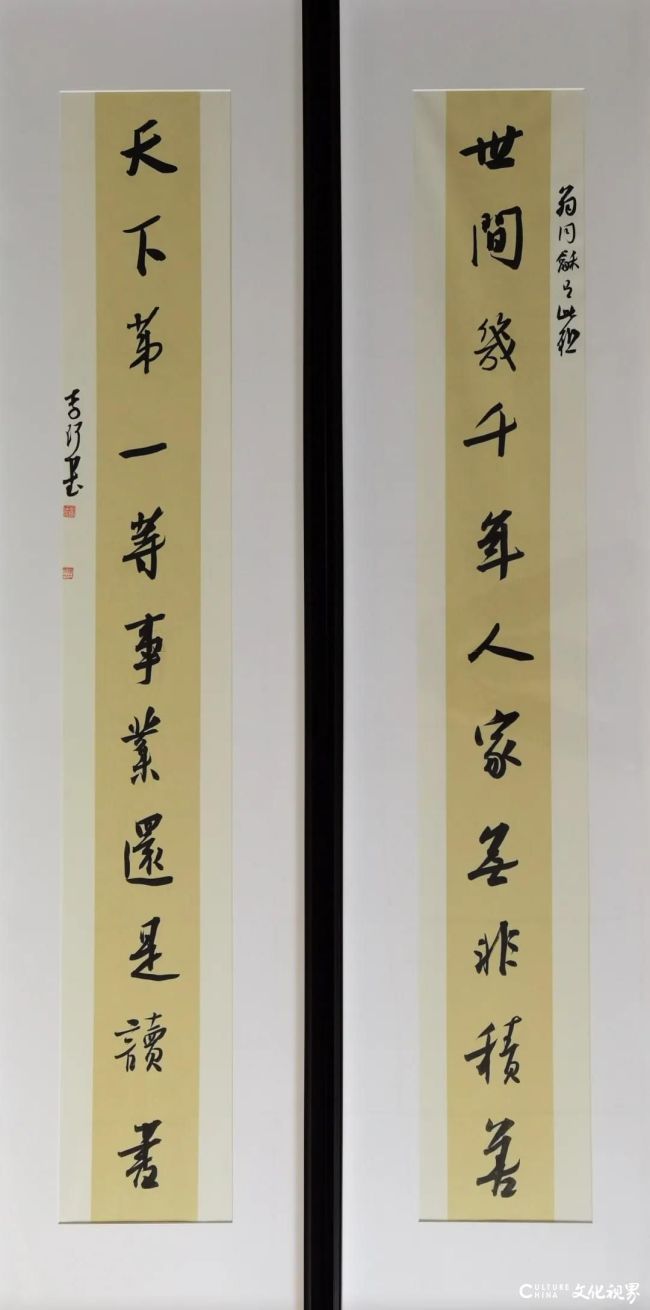 世間幾千年人家無非積善
翁同龢
天下第一等事業還是讀書
CULTURE CHINA 文化视界